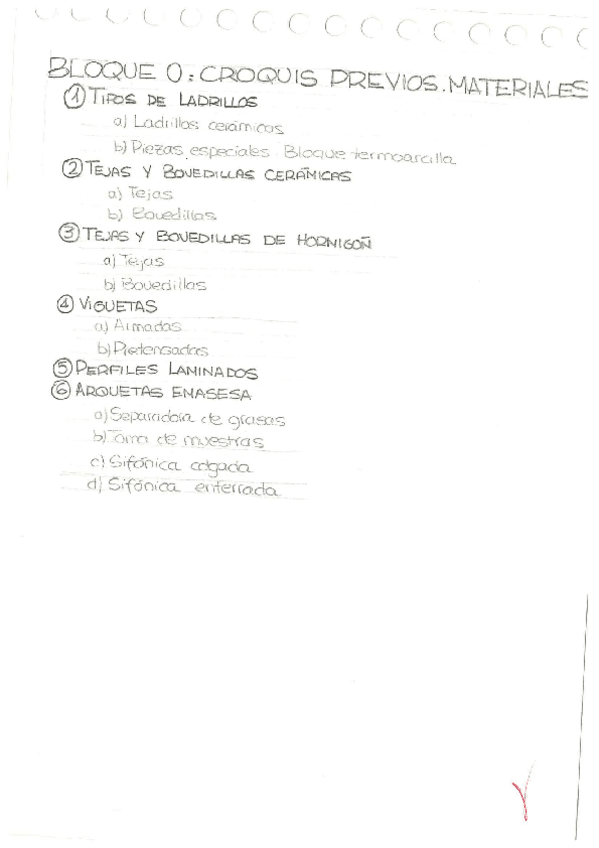 BLOQUE 0: CROQUIS PREVIOS. MATERIALES
① TIPOS DE LADRILLOS
a) Ladrillos cerámicos
b) Piezas especiales. Bloque termoarcilla
② TEJAS Y BOVEDILLAS CERÁMICAS
a) Tejas
b) Bovedillas
③ TEJAS Y BOVEDILLAS DE HORMIGOÑ
a) Tejas
b) Bovedillas
④ VIGUETAS
a) Armadas
b) Pretensadas
⑤ PERFILES LAMINADOS
⑥ ARQUETAS EMASESA
a) Separadora de grasas
b) Toma de muestras
c) Sifónica colgada
d) Sifónica enterrada